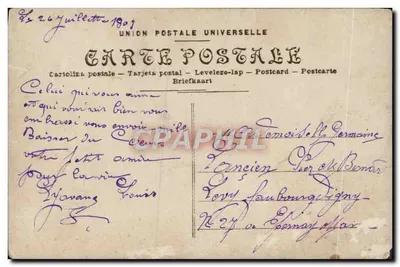 Le 26 Juillette 1909
UNION POSTALE UNIVERSELLE
CARTE POSTALE
Cartolina postale — Tarjeta postal — Levelezo-lap — Postcard — Postcarte
Briefkaart
Celui qui vous aime
et qui voudrait bien vous
embrassé vous envoi mils
Baiser du Cœur
votre petit amie
pour la vie
Louis
Mademoiselle Germaine
Ancien
faubourg
N° 27 a Epernay Mar
CPAPHIL